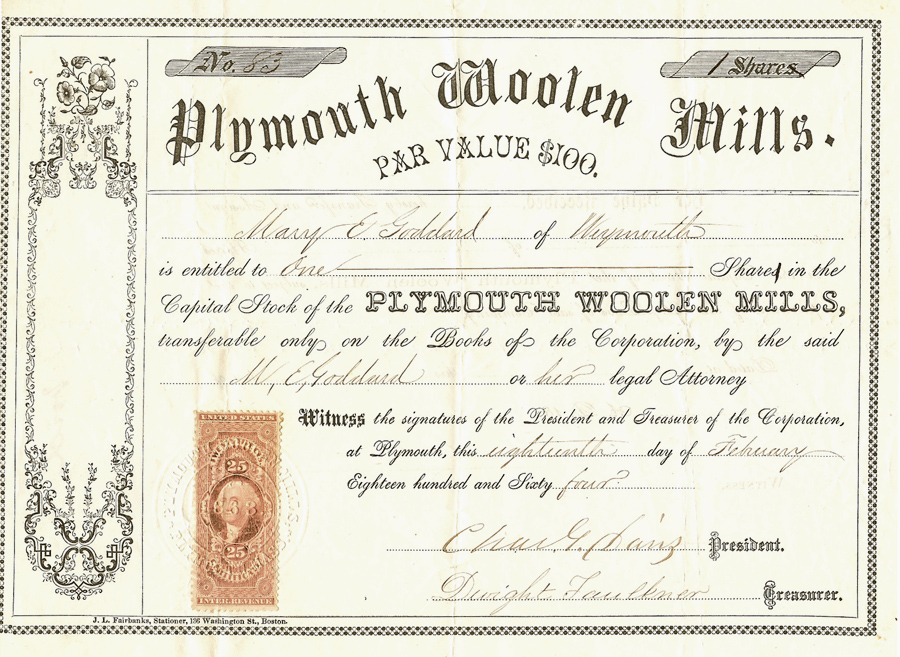 No. 83
1 Shares
Plymouth Woolen Mills.
PAR VALUE $100.
Mary E. Goddard of Weymouth
is entitled to One Share in the
Capital Stock of the PLYMOUTH WOOLEN MILLS,
transferable only on the Books of the Corporation, by the said
M. E. Goddard or her legal Attorney
Witness the signatures of the President and Treasurer of the Corporation,
at Plymouth, this eighteenth day of February
Eighteen hundred and Sixty four
Chas. G. President.
Dwight Faulkner Treasurer.
UNITED STATES
25
25
CERTIFICATE
INTER. REVENUE
J. L. Fairbanks, Stationer, 136 Washington St., Boston.